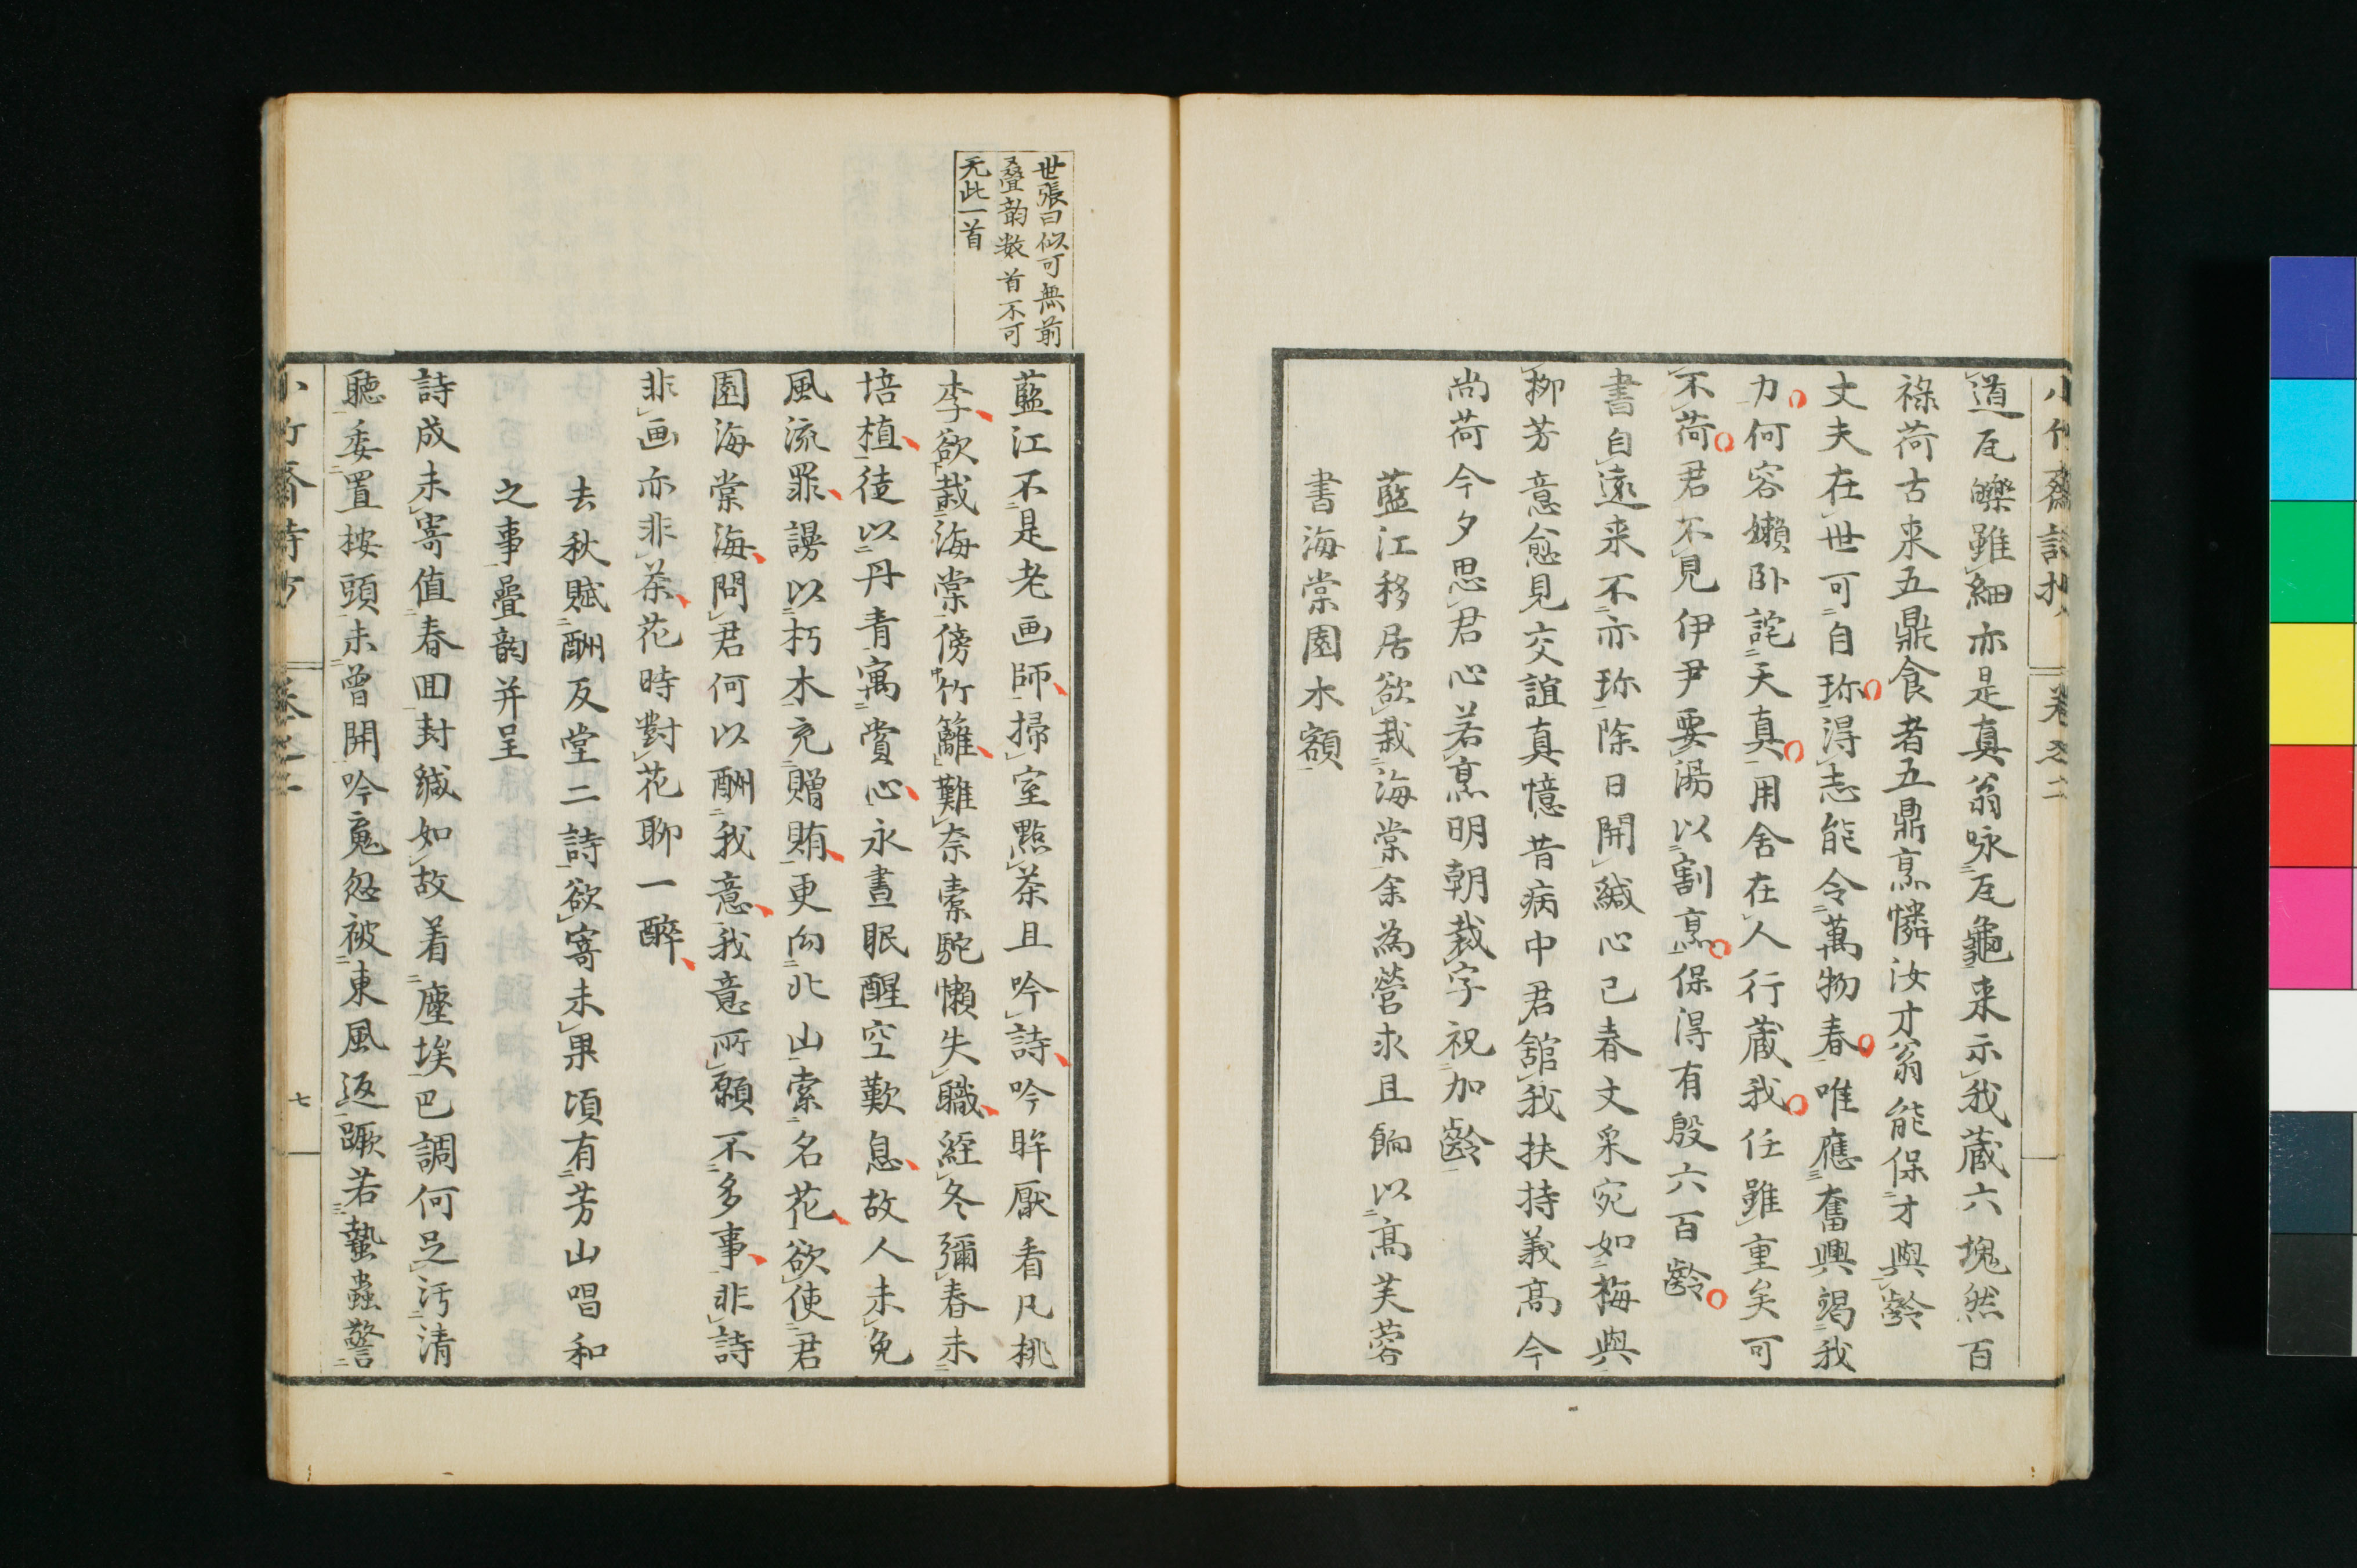 小竹齋詩抄 卷之二
道瓦礫雖細亦是真翁咏瓦龜来示我蔵六塊然百
祿荷古来五鼎食者五鼎烹憐汝才翁能保才與齡
丈夫在世可自珎得志能令萬物春唯應奮興竭我
力何容嬾卧詫天真用舍在人行蔵我任雖重矣可
不荷君不見伊尹要湯以割烹保得有殷六百齡
書自遠来不亦珎除日開緘心已春文采宛如梅與
柳芳意愈見交誼真憶昔病中君舘我扶持義高今
尚荷今夕思君心若烹明朝裁字祝加齡
藍江移居欲栽海棠余為營求且餉以高芙蓉
書海棠園木額
世張曰似可無前
疊韵数首不可
无此一首
藍江不是老画師掃室點茶且吟詩吟眸厭看凡桃
李欲栽海棠傍竹籬難奈橐駝懶失職經冬彌春未
培植徒以丹青寓賞心永晝眠醒空歎息故人未免
風流罪謾以朽木充贈賄更向北山索名花欲使君
園海棠海問君何以酬我意我意所願不多事非詩
非画亦非茶花時對花聊一醉
去秋賦酬反堂二詩欲寄未果頃有芳山唱和
之事疊韵并呈
詩成未寄值春回封緘如故着塵埃巴調何足汚清
聽委置按頭未曾開吟䰟忽被東風返蹶若蟄蟲警
小竹齋詩抄 卷之二 七